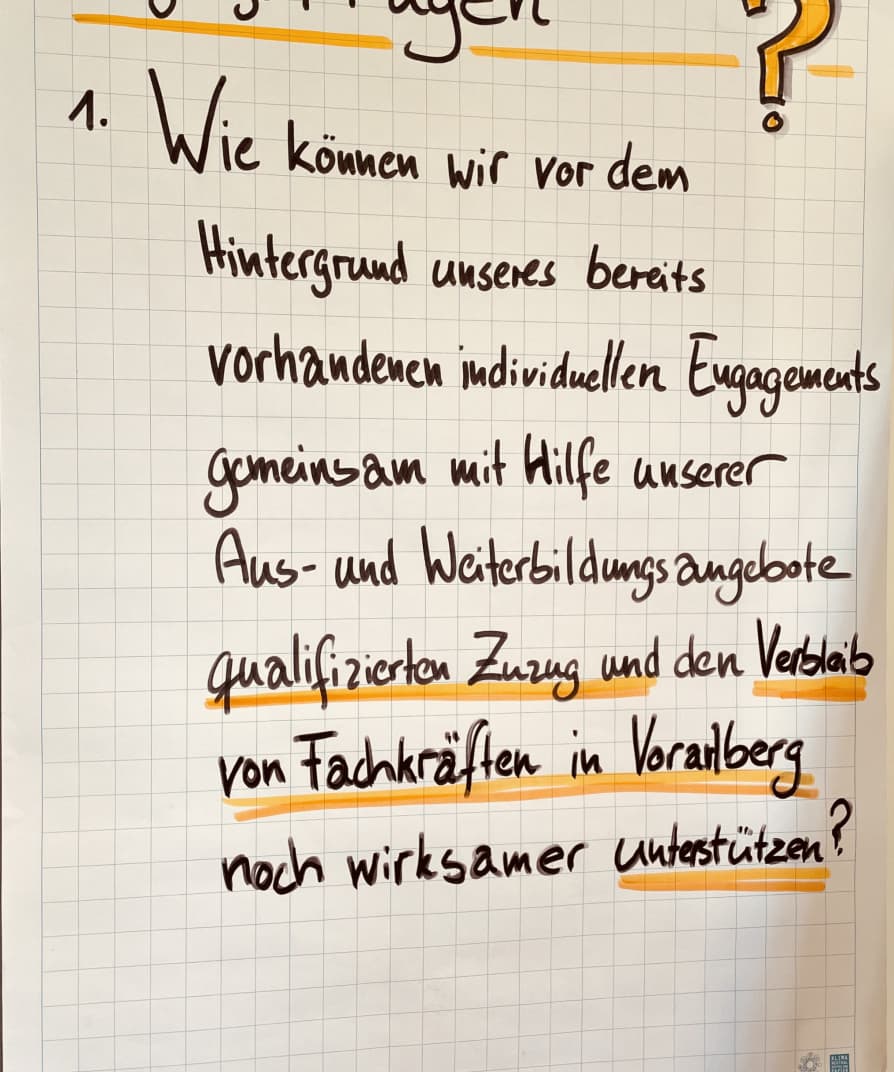 ?
1. Wie können wir vor dem
Hintergrund unseres bereits
vorhandenen individuellen Engagements
gemeinsam mit Hilfe unserer
Aus- und Weiterbildungsangebote
qualifizierten Zuzug und den Verbleib
von Fachkräften in Vorarlberg
noch wirksamer unterstützen?